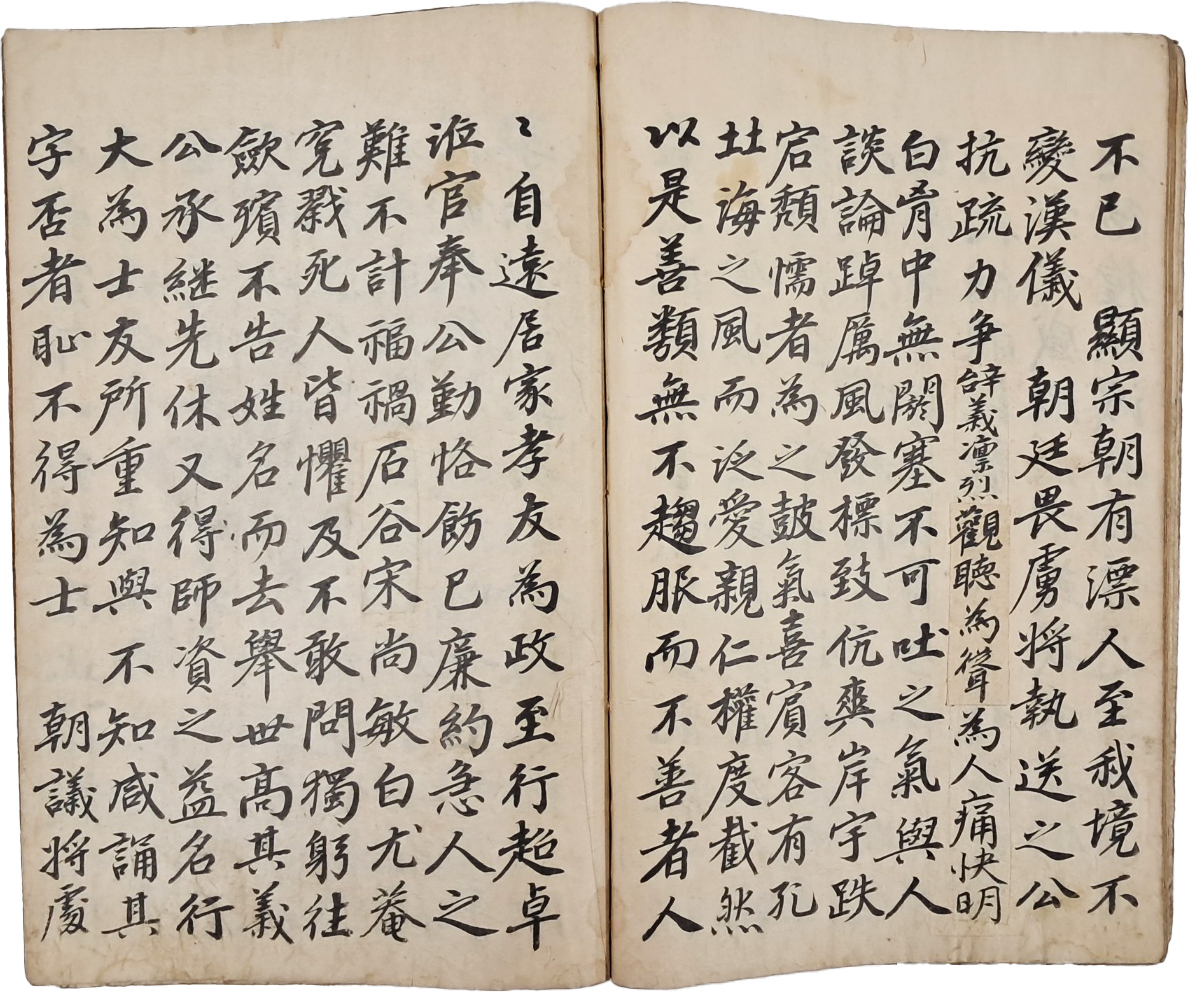 不已　顯宗朝有漂人至我境不
變漢儀　朝廷畏虜將執送之公
抗疏力爭辭義凛烈觀聽為聳為人痛快明
白胷中無閼塞不可吐之氣與人
談論踔厲風發標致伉爽岸宇跌
宕頹懦者為之鼓氣喜賓客有孔
北海之風而泛愛親仁權度截然
以是善類無不趨服而不善者人
〻自遠居家孝友為政至行超卓
涖官奉公勤恪飭已廉約急人之
難不計福禍石谷宋尚敏白尤菴
寃戮死人皆懼及不敢問獨躬往
歛殯不告姓名而去舉世高其義
公承継先休又得師資之益名行
大為士友所重知與不知咸誦其
字否者恥不得為士　朝議將處